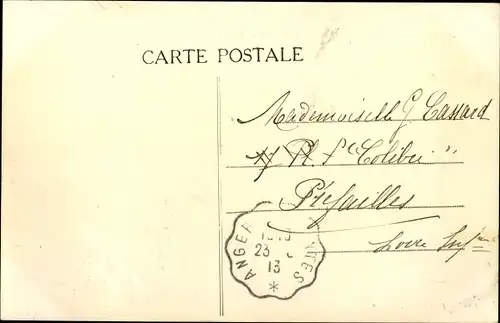 CARTE POSTALE
Mademoiselle G. Cassard
"Colibri"
Préfailles
Loire Infre
ANGE
TES
23
13
*